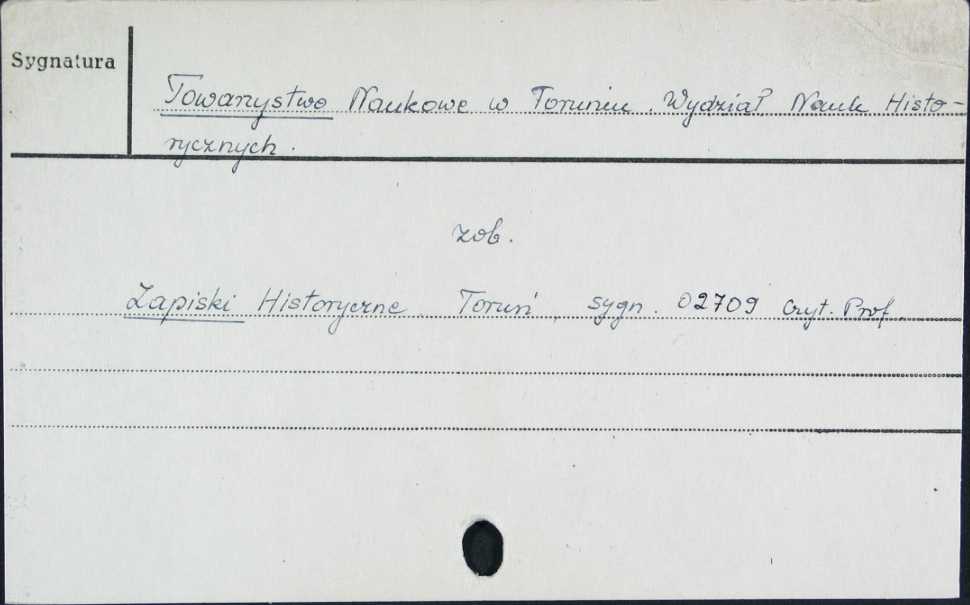 Sygnatura
Towarzystwo Naukowe w Toruniu. Wydział Nauk Histo-
rycznych.
zob.
Zapiski Historyczne. Toruń, sygn. 02709 Czyt. Prof.